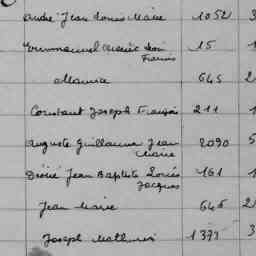 André Jean Louis Marie 1052 3
Emmanuel Désiré 15 1
Francis
Maurice 645 2
Constant Joseph François 211 1
Auguste Guillaume Jean 2090 5
Marie
Désiré Jean Baptiste Louis 161 1
Jacques
Jean Marie 646 2
Joseph Mathurin 1377 3